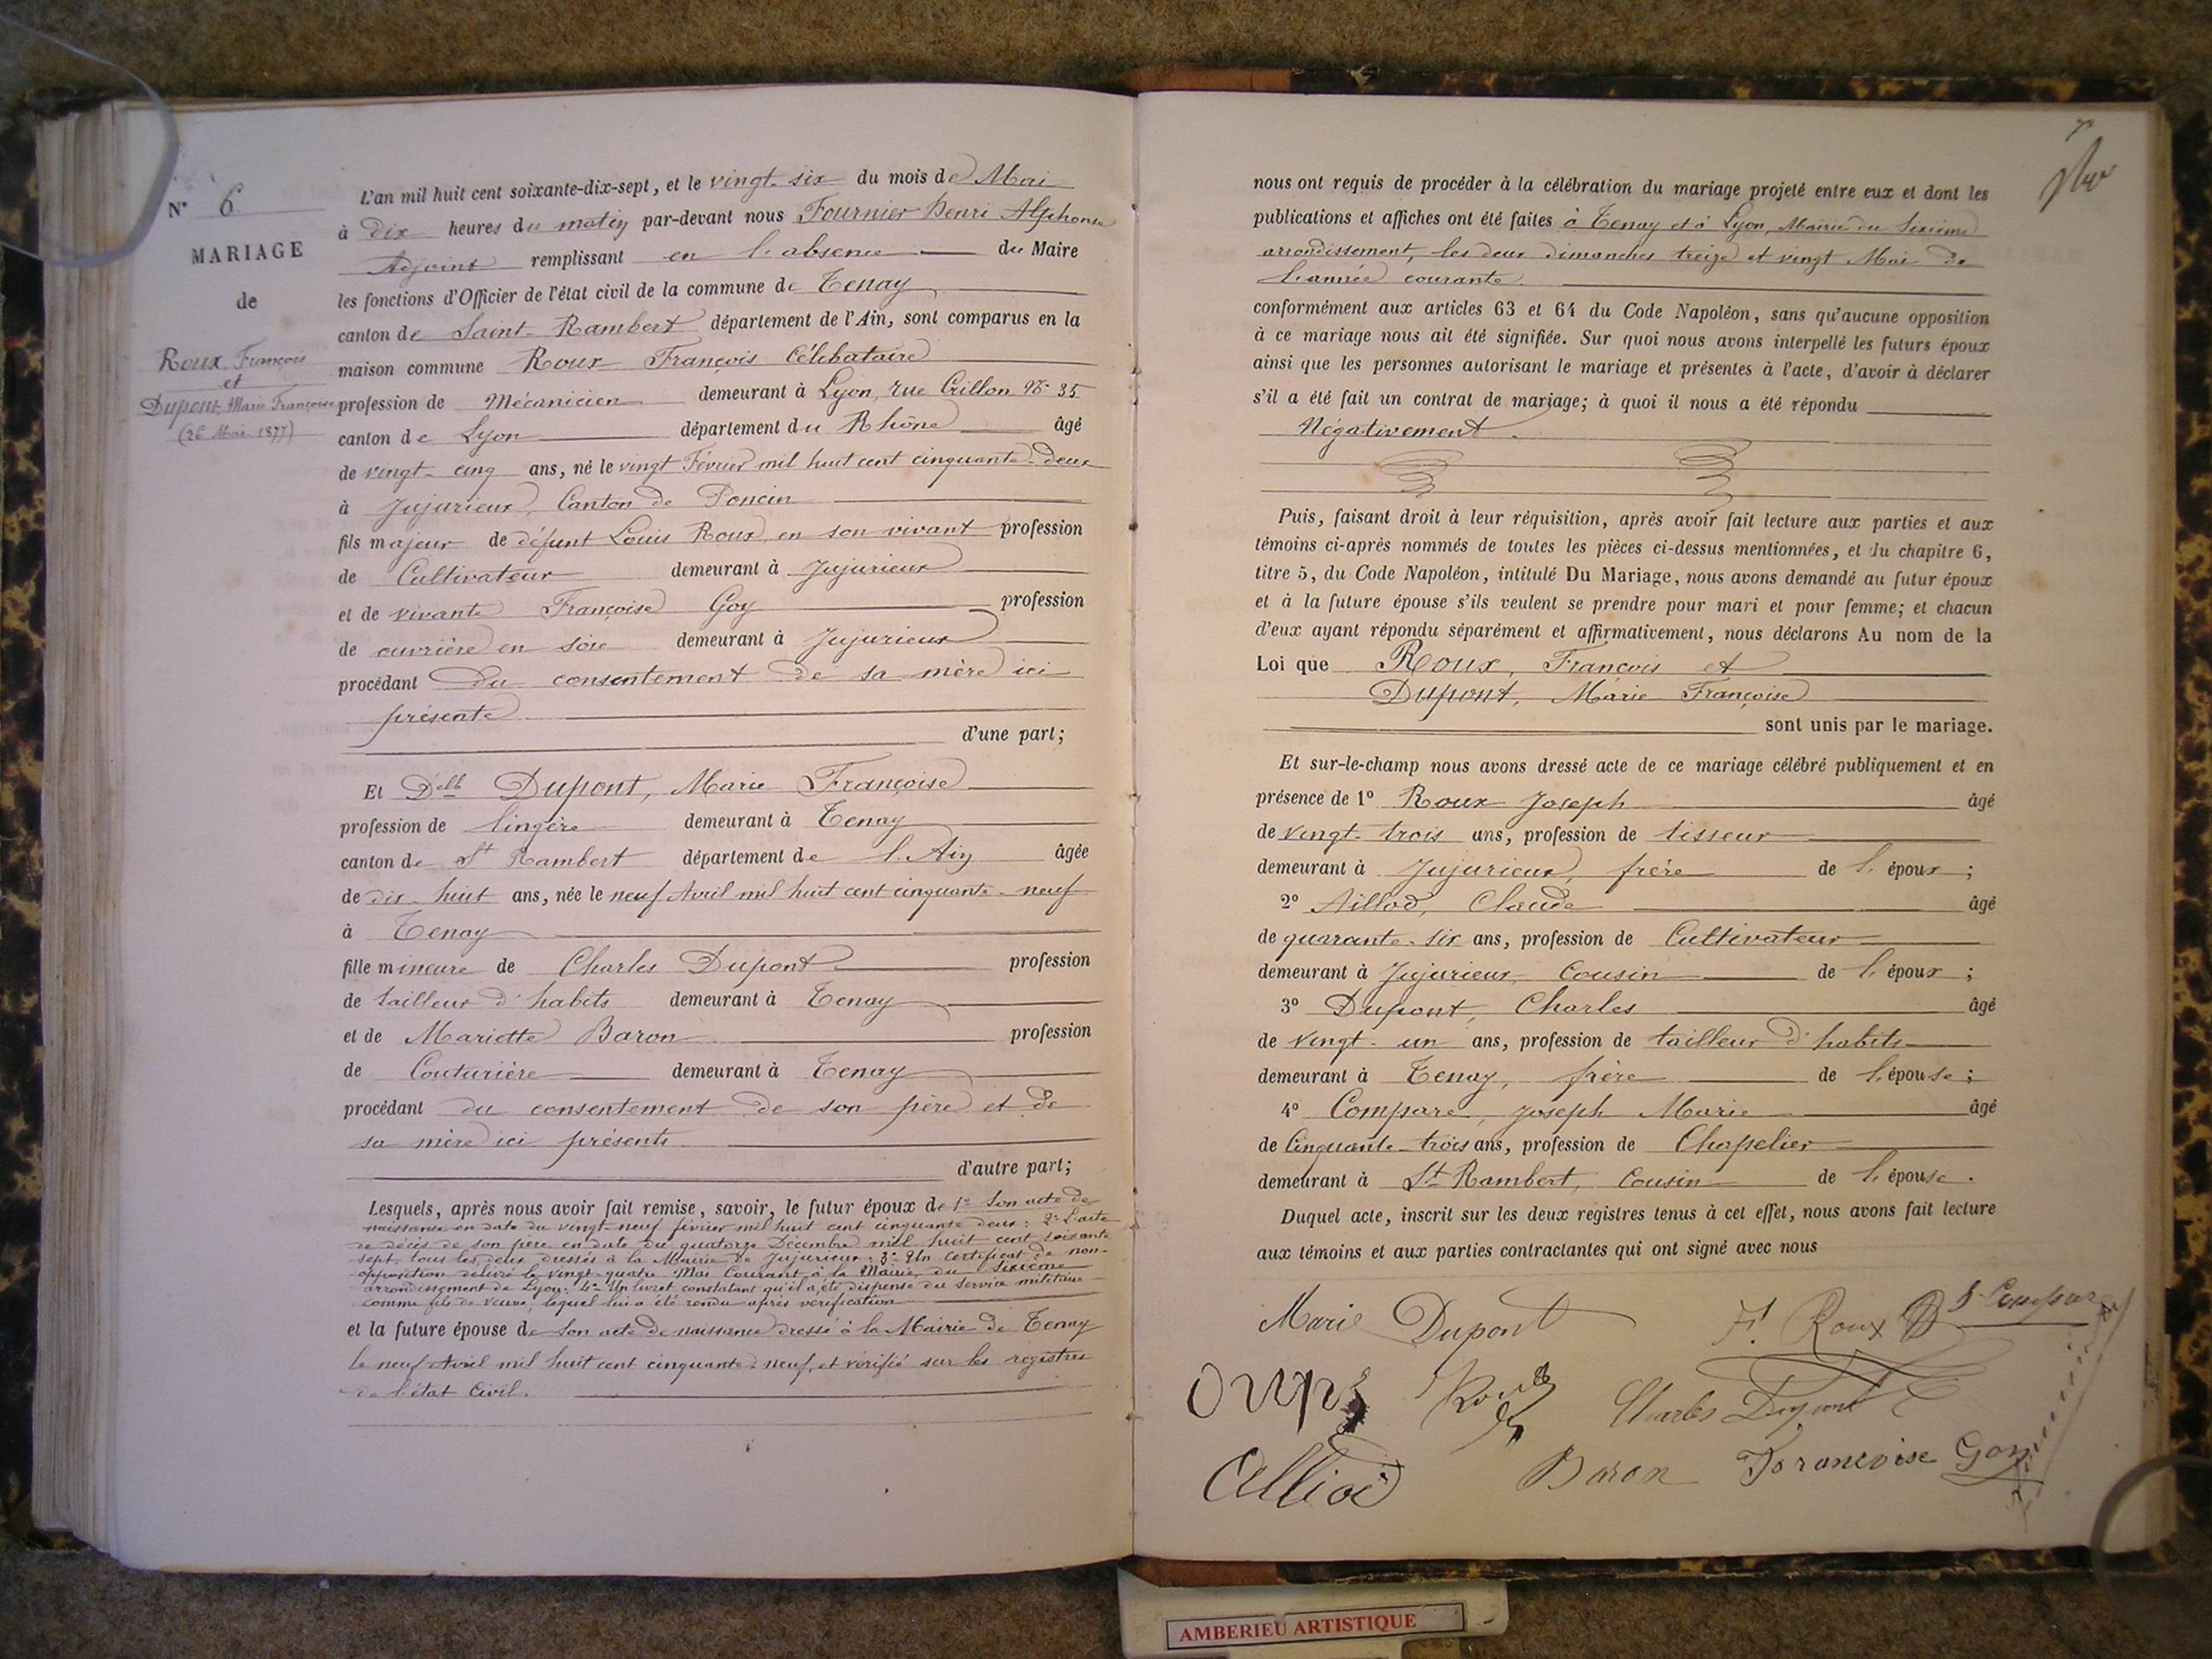 N° 6
MARIAGE
de
Roux, François
et
Dupont, Marie Françoise
(26 Mai 1877)
L'an mil huit cent soixante-dix-sept, et le vingt-six du mois de Mai
à dix heures du matin par-devant nous Fournier Henri Alphonse
Adjoint remplissant en l'absence du Maire
les fonctions d'Officier de l'état civil de la commune de Tenay
canton de Saint-Rambert département de l'Ain, sont comparus en la
maison commune Roux François Célibataire
profession de Mécanicien demeurant à Lyon, rue Crillon N° 35
canton de Lyon département du Rhône âgé
de vingt-cinq ans, né le vingt Février mil huit cent cinquante-deux
à Jujurieux, Canton de Poncin
fils majeur de défunt Louis Roux en son vivant profession
de Cultivateur demeurant à Jujurieux
et de vivante Françoise Goy profession
de ouvrière en soie demeurant à Jujurieux
procédant du consentement de sa mère ici
présente
d'une part;
Et Delle Dupont, Marie Françoise
profession de lingère demeurant à Tenay
canton de St Rambert département de l'Ain âgée
de dix-huit ans, née le neuf Avril mil huit cent cinquante-neuf
à Tenay
fille mineure de Charles Dupont profession
de tailleur d'habits demeurant à Tenay
et de Mariette Baron profession
de Couturière demeurant à Tenay
procédant du consentement de son père et de
sa mère ici présents
d'autre part;
Lesquels, après nous avoir fait remise, savoir, le futur époux de 1° Son acte de
naissance en date du vingt-neuf février mil huit cent cinquante deux : 2° L'acte
de décès de son père en date du quatorze Décembre mil huit cent soixante
sept, tous les deux dressés à la Mairie de Jujurieux ; 3° Un certificat de non-
opposition délivré le vingt-quatre Mai Courant à la Mairie du Sixième
arrondissement de Lyon : 4° Un livret constatant qu'il a été dispensé du service militaire
comme fils de veuve, lequel lui a été rendu après vérification
et la future épouse de Son acte de naissance dressé à la Mairie de Tenay
le neuf Avril mil huit cent cinquante-neuf, et vérifié sur les registres
de l'état Civil.
nous ont requis de procéder à la célébration du mariage projeté entre eux et dont les
publications et affiches ont été faites à Tenay et à Lyon, Mairie du Sixième
arrondissement, les deux dimanches treize et vingt Mai de
l'année courante.
conformément aux articles 63 et 64 du Code Napoléon, sans qu'aucune opposition
à ce mariage nous ait été signifiée. Sur quoi nous avons interpellé les futurs époux
ainsi que les personnes autorisant le mariage et présentes à l'acte, d'avoir à déclarer
s'il a été fait un contrat de mariage; à quoi il nous a été répondu
Négativement.
Puis, faisant droit à leur réquisition, après avoir fait lecture aux parties et aux
témoins ci-après nommés de toutes les pièces ci-dessus mentionnées, et du chapitre 6,
titre 5, du Code Napoléon, intitulé Du Mariage, nous avons demandé au futur époux
et à la future épouse s'ils veulent se prendre pour mari et pour femme; et chacun
d'eux ayant répondu séparément et affirmativement, nous déclarons Au nom de la
Loi que Roux, François et
Dupont, Marie Françoise
sont unis par le mariage.
Et sur-le-champ nous avons dressé acte de ce mariage célébré publiquement et en
présence de 1° Roux Joseph âgé
de vingt-trois ans, profession de tisseur
demeurant à Jujurieux, frère de l'époux ;
2° Aillod, Claude âgé
de quarante-six ans, profession de Cultivateur
demeurant à Jujurieux, Cousin de l'époux ;
3° Dupont, Charles âgé
de vingt-un ans, profession de tailleur d'habits
demeurant à Tenay, frère de l'épouse ;
4° Compare, Joseph Marie âgé
de Cinquante-trois ans, profession de Chapelier
demeurant à St Rambert, Cousin de l'épouse.
Duquel acte, inscrit sur les deux registres tenus à cet effet, nous avons fait lecture
aux témoins et aux parties contractantes qui ont signé avec nous
Marie Dupont F. Roux
Roux Charles Dupont
Baron Francoise Goy
AMBERIEU ARTISTIQUE